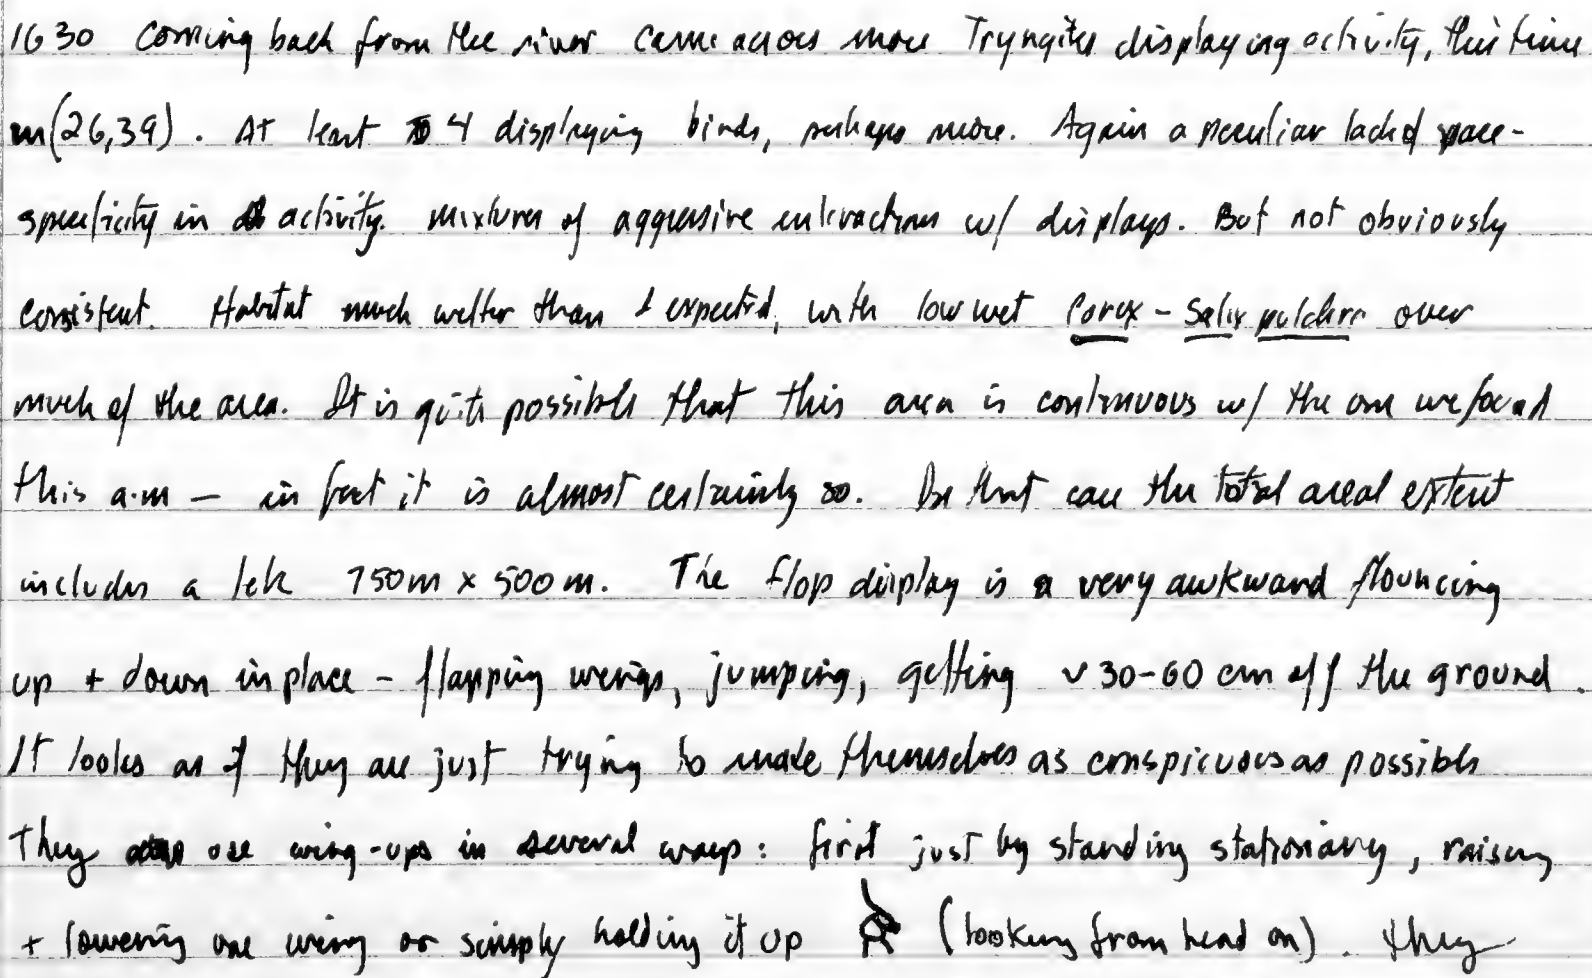 1630 Coming back from the river came across more Tryngites displaying activity, this time
m(26,39). At least 4 displaying birds, perhaps more. Again a peculiar lack of place-
specificity in activity. mixtures of aggressive interactions w/ displays. But not obviously
consistent. Habitat much wetter than I expected, with low wet Carex - Salix pulchra over
much of the area. It is quite possible that this area is continuous w/ the one we found
this a.m — in fact it is almost certainly so. In that case the total areal extent
includes a lek 750m x 500m. The flop display is a very awkward flouncing
up + down in place - flapping wings, jumping, getting ~ 30-60 cm off the ground.
It looks as if they are just trying to make themselves as conspicuous as possible
They use wing-ups in several ways: first just by standing stationary, raising
+ lowering one wing or simply holding it up (looking from head on). they